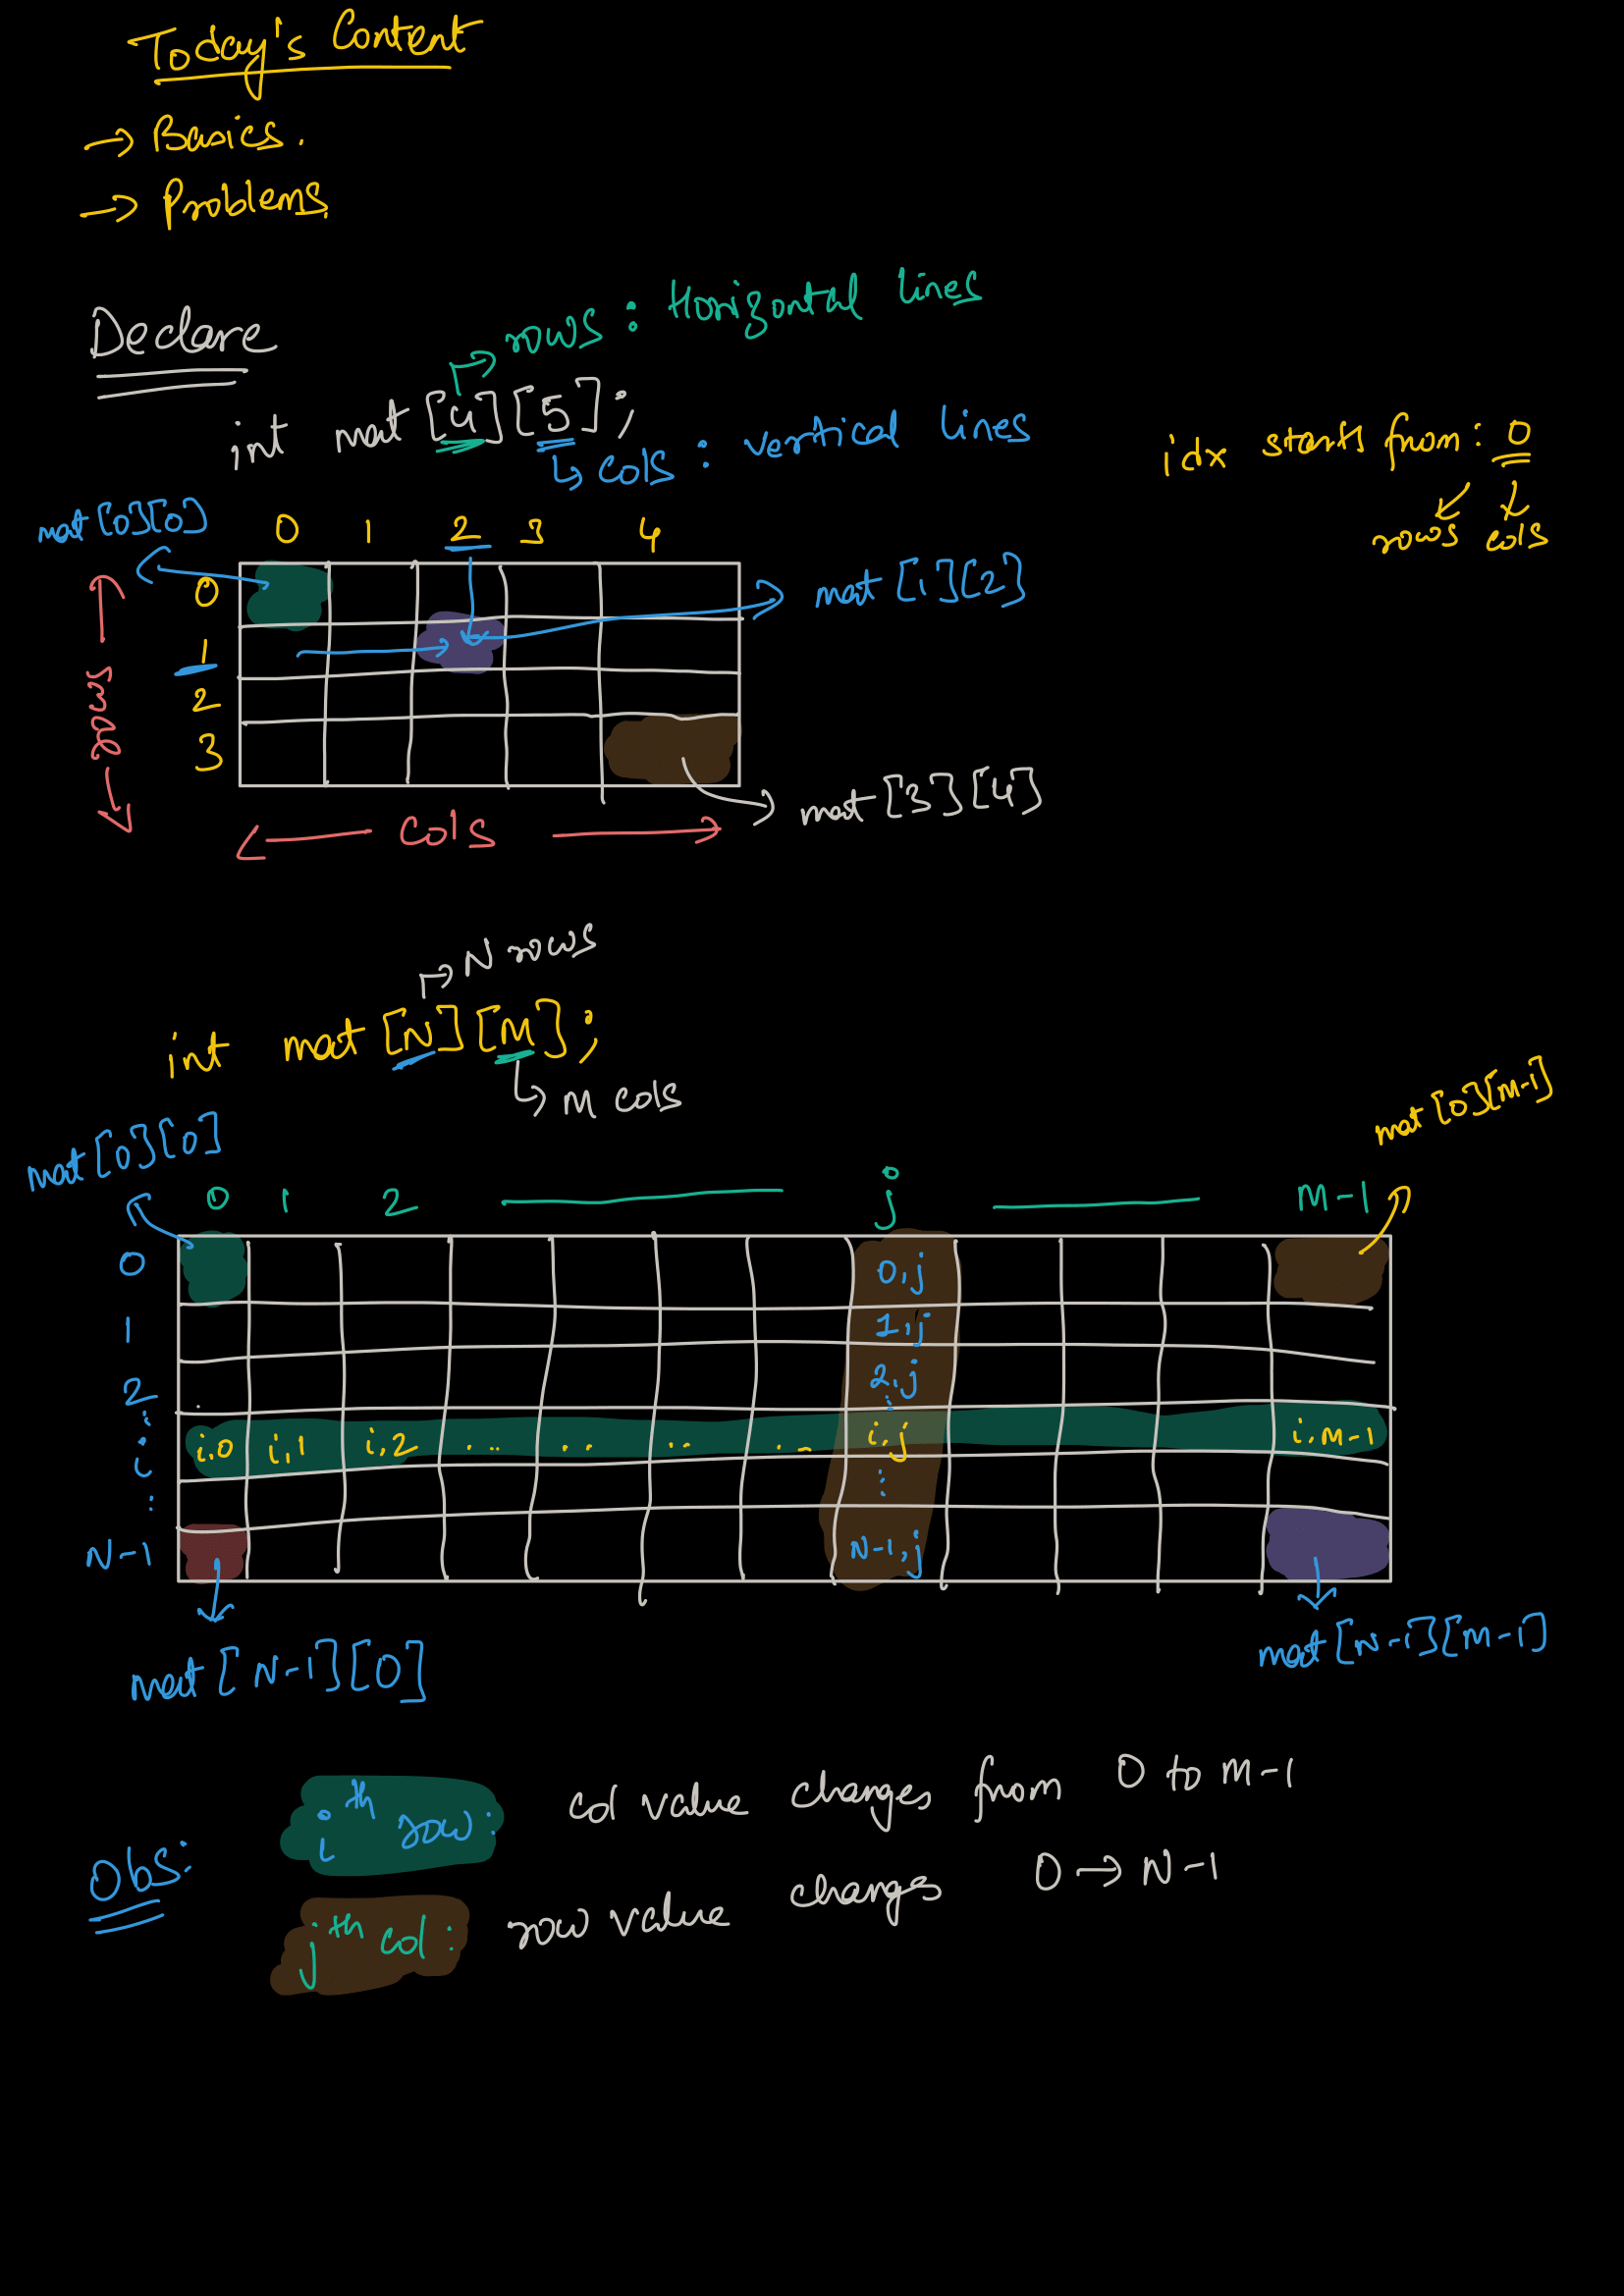 Today's Content
→ Basics.
→ Problems.
Declare
rows : Horizontal lines
int mat [4][5];
cols : vertical lines
idx starts from: 0
rows cols
mat[0][0]
0 1 2 3 4
0
1
2
3
rows
mat [1][2]
mat [3][4]
cols
N rows
int mat [N][M];
M cols
mat[0][0]
mat[0][M-1]
0 1 2 j M-1
0 0,j
1 1,j
2 2,j
⋮
i i,0 i,1 i,2 .. .. .. .. i,j i,M-1
⋮
N-1 N-1,j
mat[N-1][0]
mat[N-1][M-1]
Obs:
i th row: col value changes from 0 to M-1
j th col: row value changes 0 → N-1